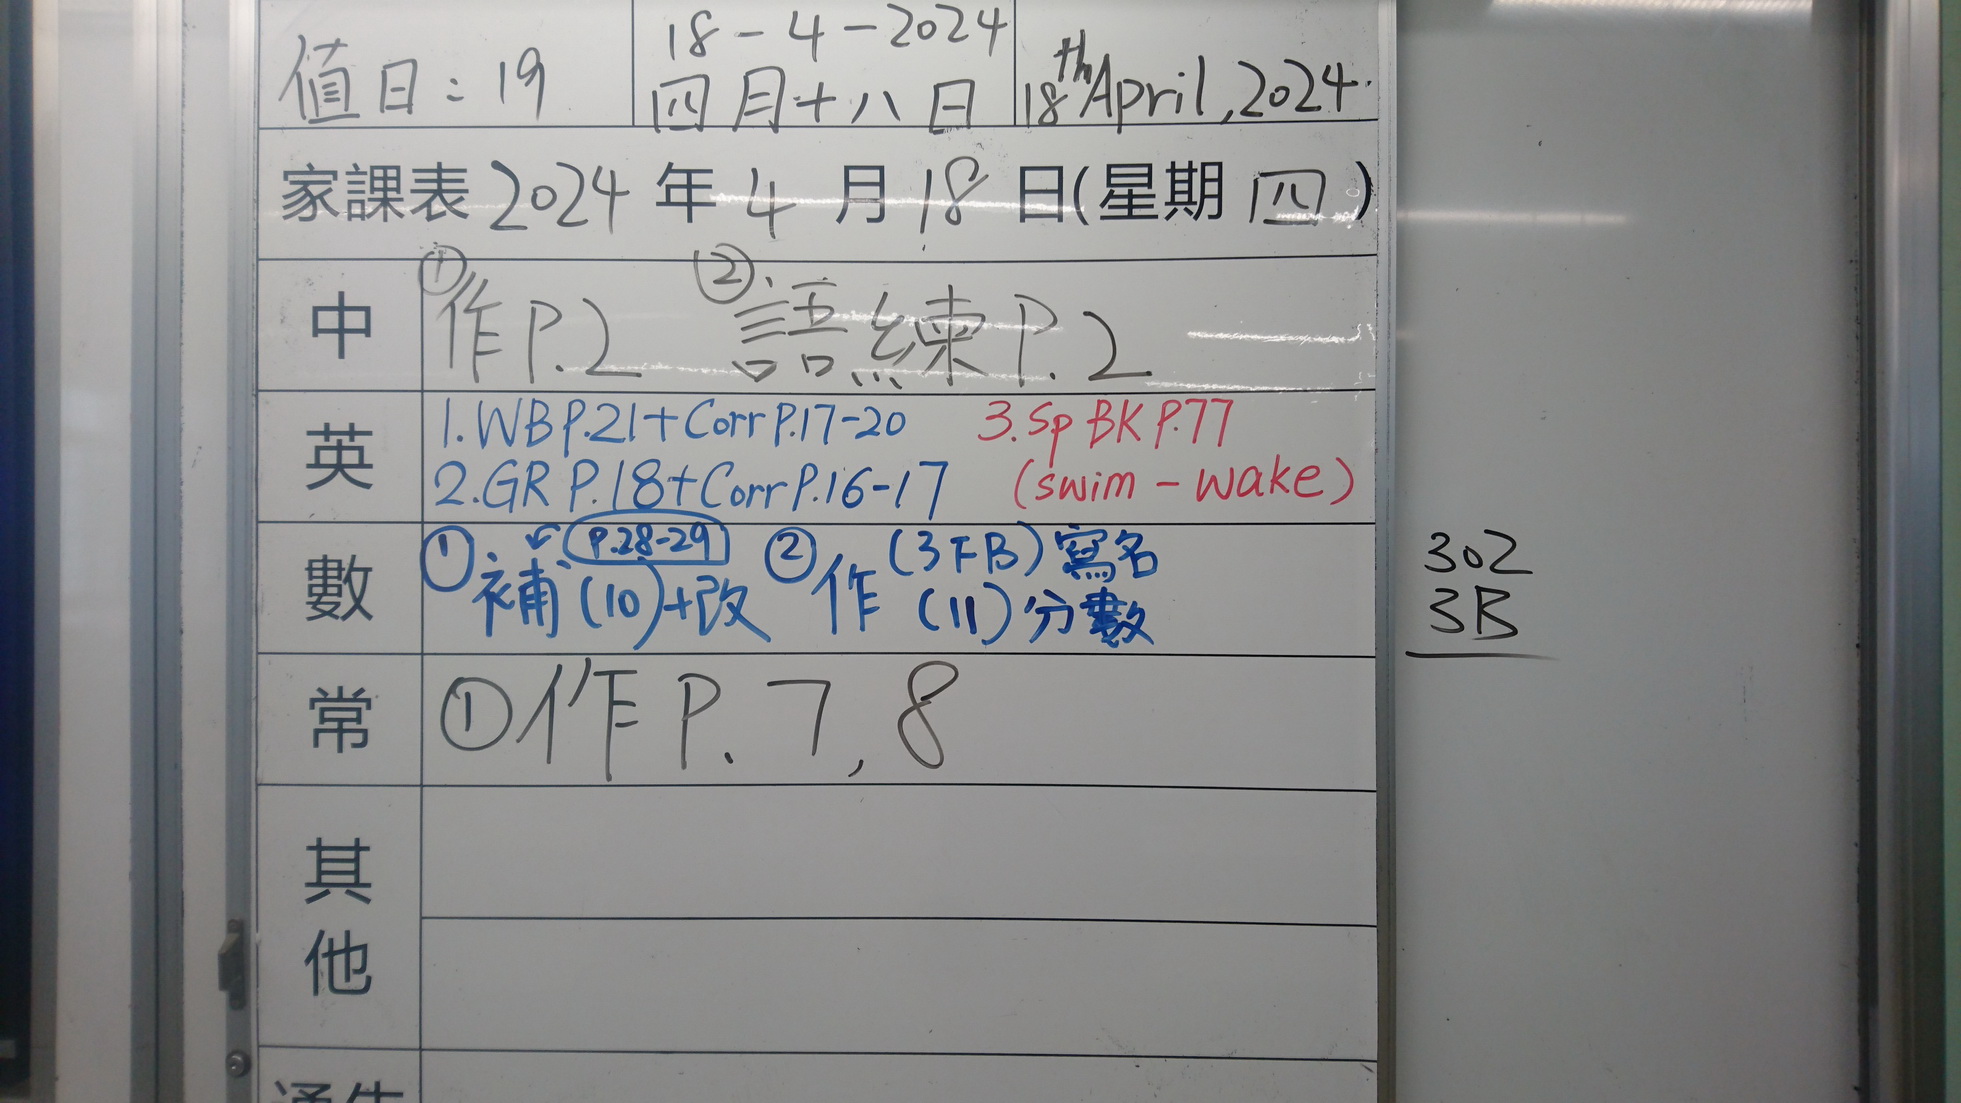 值日：19
18-4-2024
四月十八日
18th April, 2024.
家課表 2024 年 4 月 18 日(星期 四)
中
① 作 P.2 ② 語練 P.2
英
1. WB P.21 + Corr P.17-20
2. GR P.18 + Corr P.16-17
3. Sp BK P.77
(swim - wake)
數
① 補(10)+改
P.28-29
② 作 (3下B) 寫名
(11) 分數
常
① 作 P. 7, 8
其他
通告
302
3B